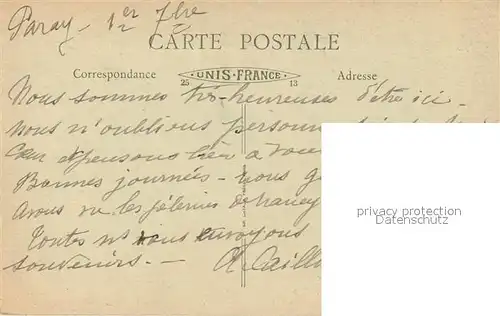 Paray - 1er 7bre
CARTE POSTALE
Correspondance
UNIS-FRANCE
25 13
Adresse
Nous sommes très-heureuses d'être ici -
nous n'oublions personn
Cœur et pensons bien à vous
Bonnes journées - nous
Avons vu les pèlerins de Nancy
Toutes ns vous envoyons
souvenirs. -
privacy protection
Datenschutz